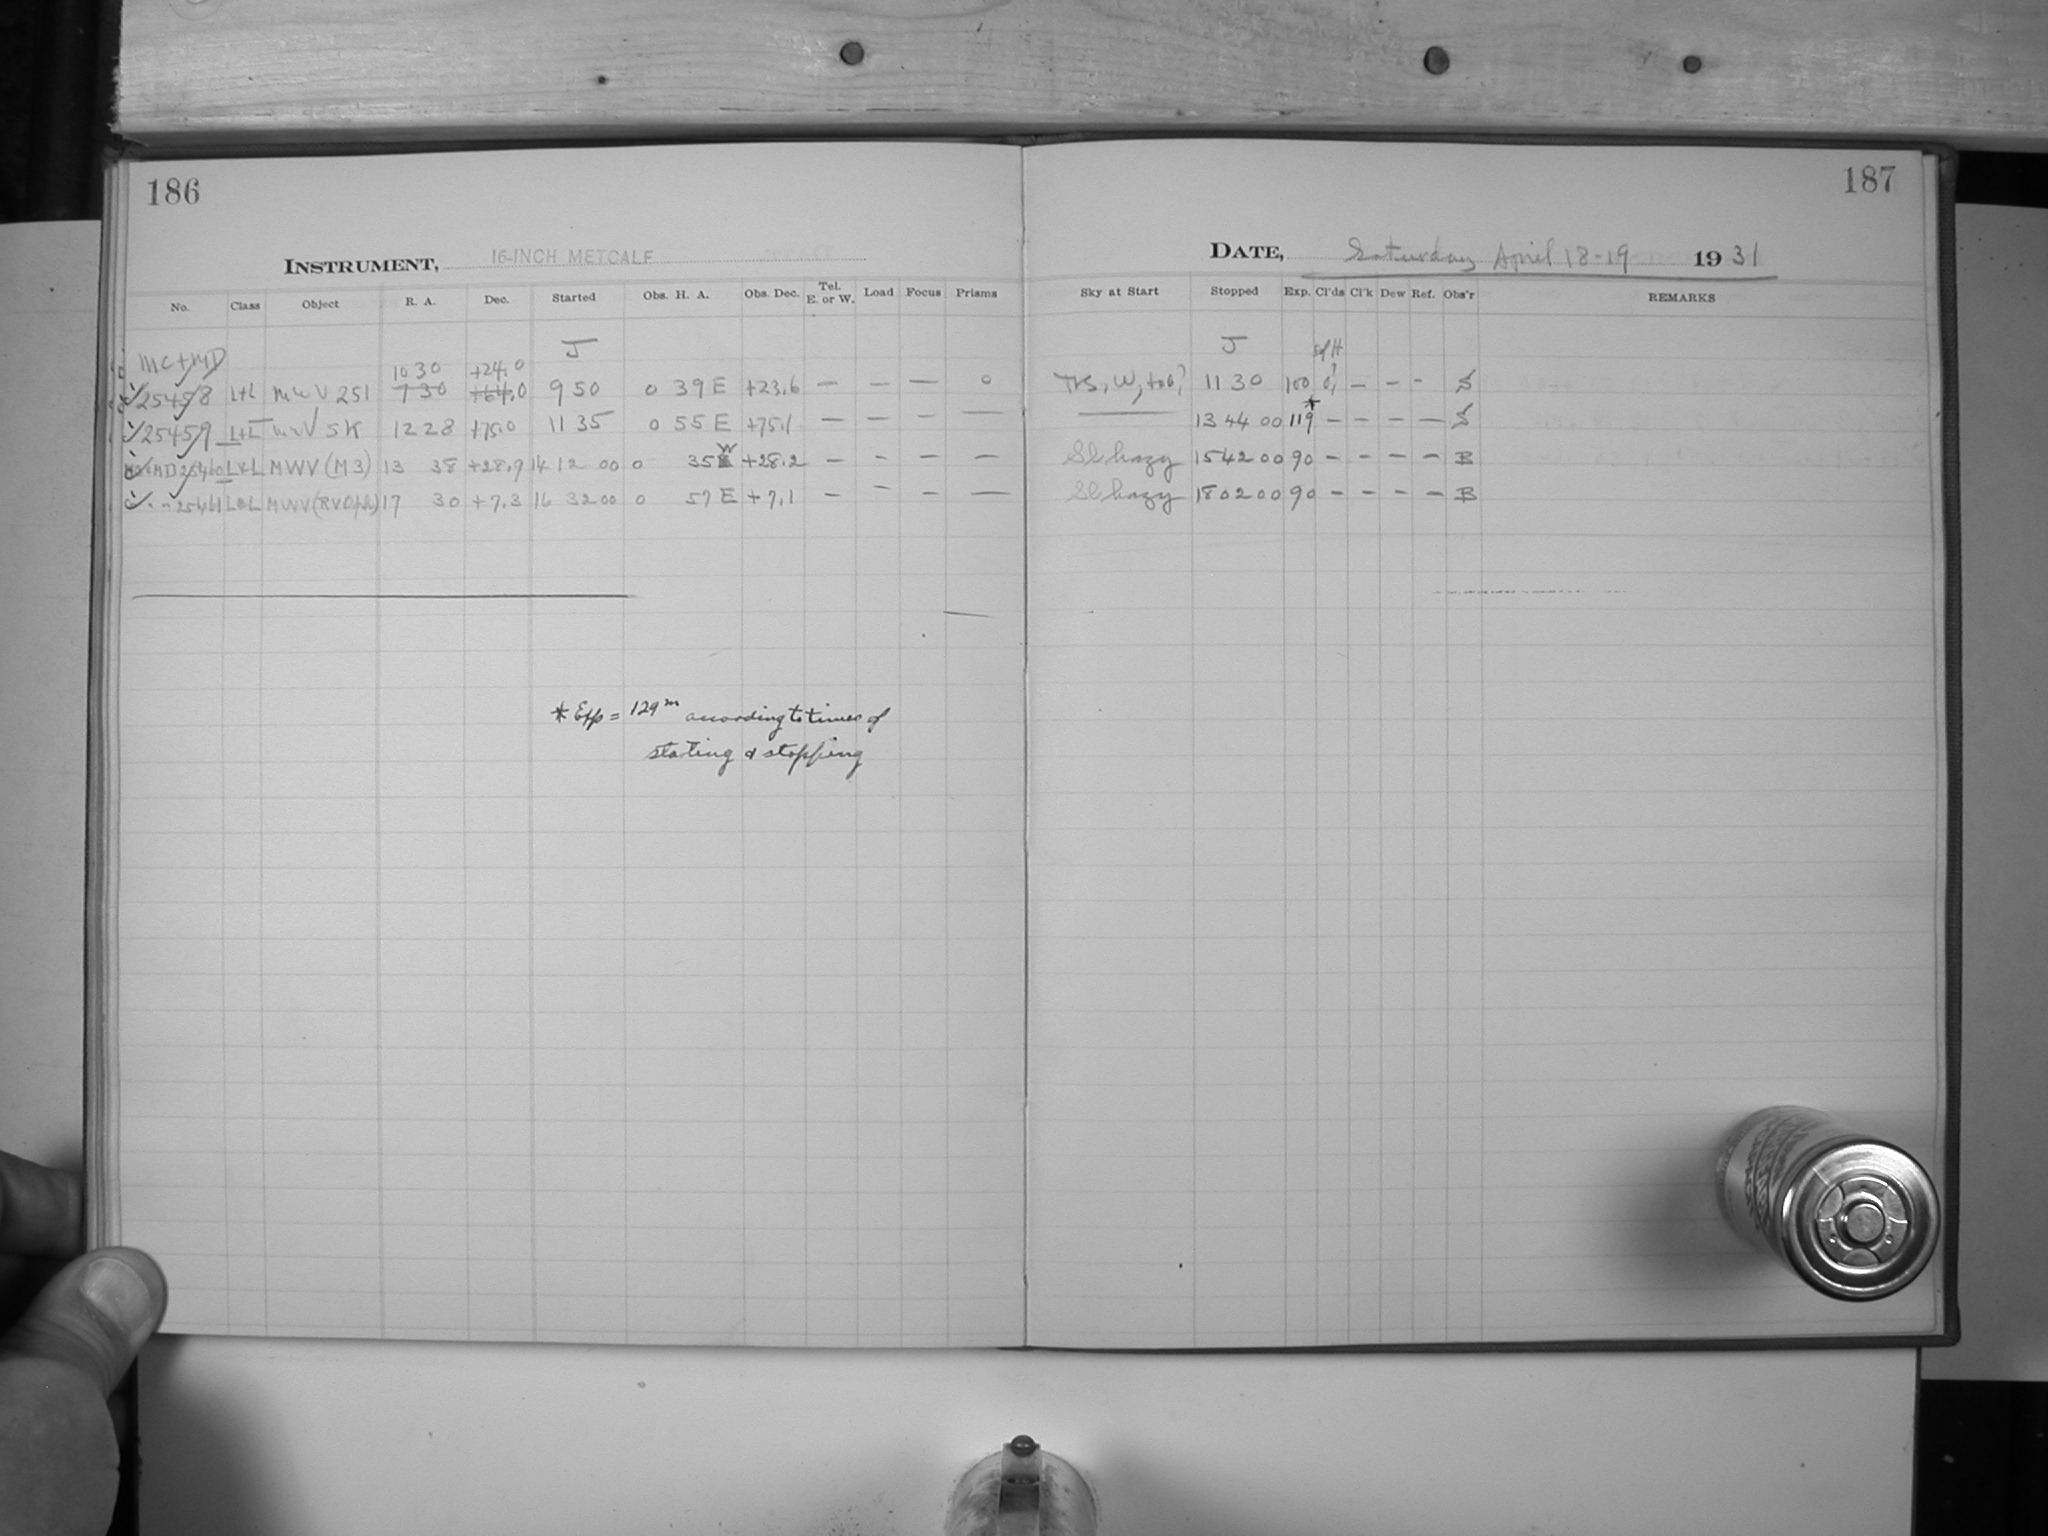 186
INSTRUMENT, 16-INCH METCALF
No. Class Object R. A. Dec. Started Obs. H. A. Obs. Dec. Tel. E. or W. Load Focus Prisms
J
MC+MD 10 30 +24.0
25458 L+L MWV 251 7 30 +64.0 9 50 0 39 E +23.6 — — — 0
25459 L+L MWV 5K 12 28 +75.0 11 35 0 55 E +75.1 — — — —
25460 L&L MWV (M3) 13 38 +28.9 14 12 00 0 35 W +28.2 — — — —
" " 25461 L&L MWV (RVOph) 17 30 +7.3 16 32 00 0 57 E +7.1 — — — —
* Exp = 129m according to times of
stating & stopping
187
DATE, Saturday April 18-19 1931
Sky at Start Stopped Exp. Cl'ds Cl'k Dew Ref. Obs'r REMARKS
J
11 30 100 0? — — - S
— 13 44 00 119* — — — — S
Sl hazy 15 42 00 90 — — — — B
Sl hazy 18 02 00 90 — — — — B